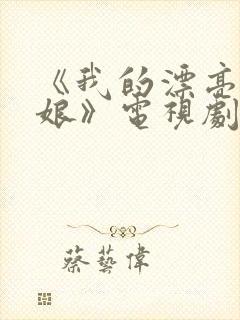 《我的漂亮
娘》電視劇
蔡藝偉